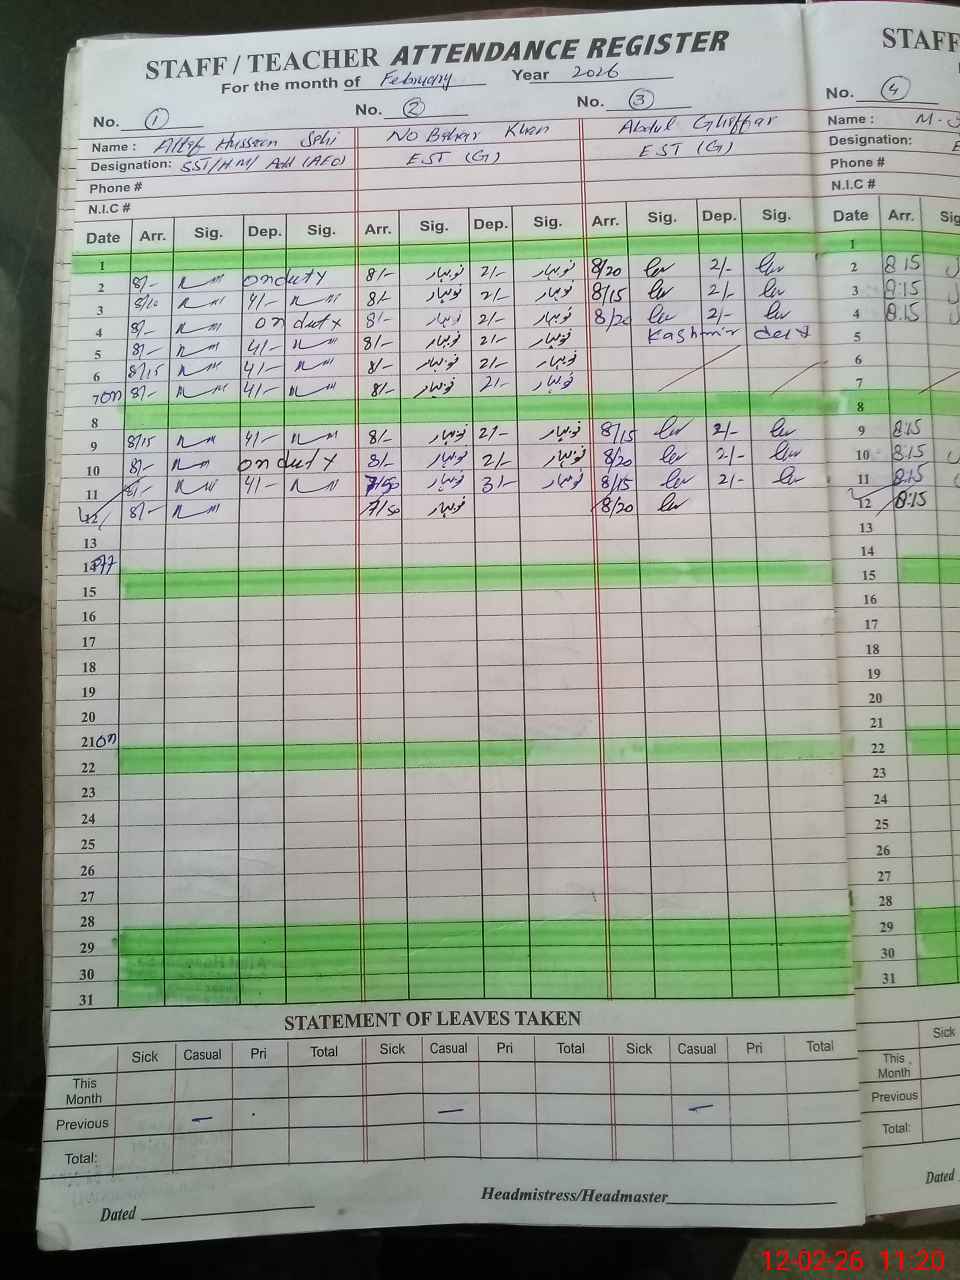 STAFF / TEACHER ATTENDANCE REGISTER STAFF
For the month of February Year 2026
No. 1 No. 2 No. 3 No. 4
Name : Hussain No Bahar Khan Abdul Ghaffar Name : M.
Designation: SST/H.M/ (AEO) EST (G) EST (G) Designation:
Phone # Phone #
N.I.C # N.I.C #
Date Arr. Sig. Dep. Sig. Arr. Sig. Dep. Sig. Arr. Sig. Dep. Sig. Date Arr.
1 1
2 8/- on duty 8/- نوبہار 2/- نوبہار 8/20 2/- 2 8:15
3 8/10 4/- 8/- نوبہار 2/- نوبہار 8/15 2/- 3 8:15
4 8/- on duty 8/- نوبہار 2/- نوبہار 8/20 2/- 4 8:15
5 8/- 4/- 8/- نوبہار 2/- نوبہار Kashmir day 5
6 8/15 4/- 8/- نوبہار 2/- نوبہار 6
7 on 8/- 4/- 8/- نوبہار 2/- نوبہار 7
8 8
9 8/15 4/- 8/- نوبہار 2/- نوبہار 8/15 2/- 9 8:15
10 8/- on duty 8/- نوبہار 2/- نوبہار 8/20 2/- 10 8:15
11 8/- 4/- 7/50 نوبہار 3/- نوبہار 8/15 2/- 11 8:15
12 8/- 7/50 نوبہار 8/20 12 8:15
13 13
14 off 14
15 15
16 16
17 17
18 18
19 19
20 20
21 on 21
22 22
23 23
24 24
25 25
26 26
27 27
28 28
29 29
30 30
31 31
STATEMENT OF LEAVES TAKEN
Sick Casual Pri Total Sick Casual Pri Total Sick Casual Pri Total Sick
This Month This Month
Previous — — — Previous
Total: Total:
Dated Headmistress/Headmaster Dated
12-02-26 11:20